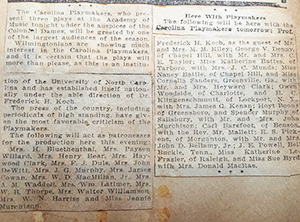 The Carolina Playmakers, who present three plays at the Academy of
Music tonight under the auspices of the
Colonial Dames, will be greeted by one
of the largest audiences of the season.
Wilmingtonians are showing much
interest in the Carolina Playmakers,
and it is certain that the plays will
more than please, as this is an institu-
tion of the University of North Caro-
lina and has established itself nation-
ally under the able direction of Dr.
Frederick H. Koch.
The press of the country, including
periodicals of high standing, have given
the most favorable criticism of the
Playmakers.
The following will act as patronesses
for the production here this evening:
Mrs. H. Huethenthal, Mrs. Payson
Willard, Mrs. Henry Bear, Mrs. Hay-
wood Clark, Mrs. F. J. Duls, Mrs. John
DeWitt, Mrs. J. G. Murphy, Mrs. James
Cowan, Mrs. W. D. MacMillan, Jr., Mrs.
A. M. Waddell, Mrs. Wm. Latimer, Mrs.
W. R. Thorpe, Mrs. Walter Williamson,
Mrs. W. N. Harriss and Miss Jeanie
Murchison.
Here With Playmakers
The following will be here with the
Carolina Playmakers tomorrow: Prof.
Frederick H. Koch, as the guest of Mr.
and Mrs. M. M. Riley; George V. Denny
of Chapel Hill, with Mr. and Mrs.
E. Taylor; Miss Katherine Battes, of
Tarboro, with Mrs. J. G. Munds; Miss
Nancy Battle, of Chapel Hill, and Miss
Cornelia Sanders, Greenville, Ga., with
Mr. and Mrs. Heyward Clark; George
Cornelia, of Charlotte, and H. O.
Klingenschmidt, of Lockport, N. Y.,
with Mrs. James O. Kenan; Hoyt Boone
of Greensboro, and Spender Murphy of
Salisbury, with Mr. and Mrs.
Murchison; Carl Harsfoof, of Beaufort,
with the Rev. Mr. Mallett; E. S.
of Morganton, with Mr. and Mrs.
John D. Bellamy, Jr.; J. E. Fowell,
Murphy, Tenn.; Miss Katherine Lee
Frazier, of Raleigh, and Miss Sue Byrd
with Mrs. Donald MacRae.